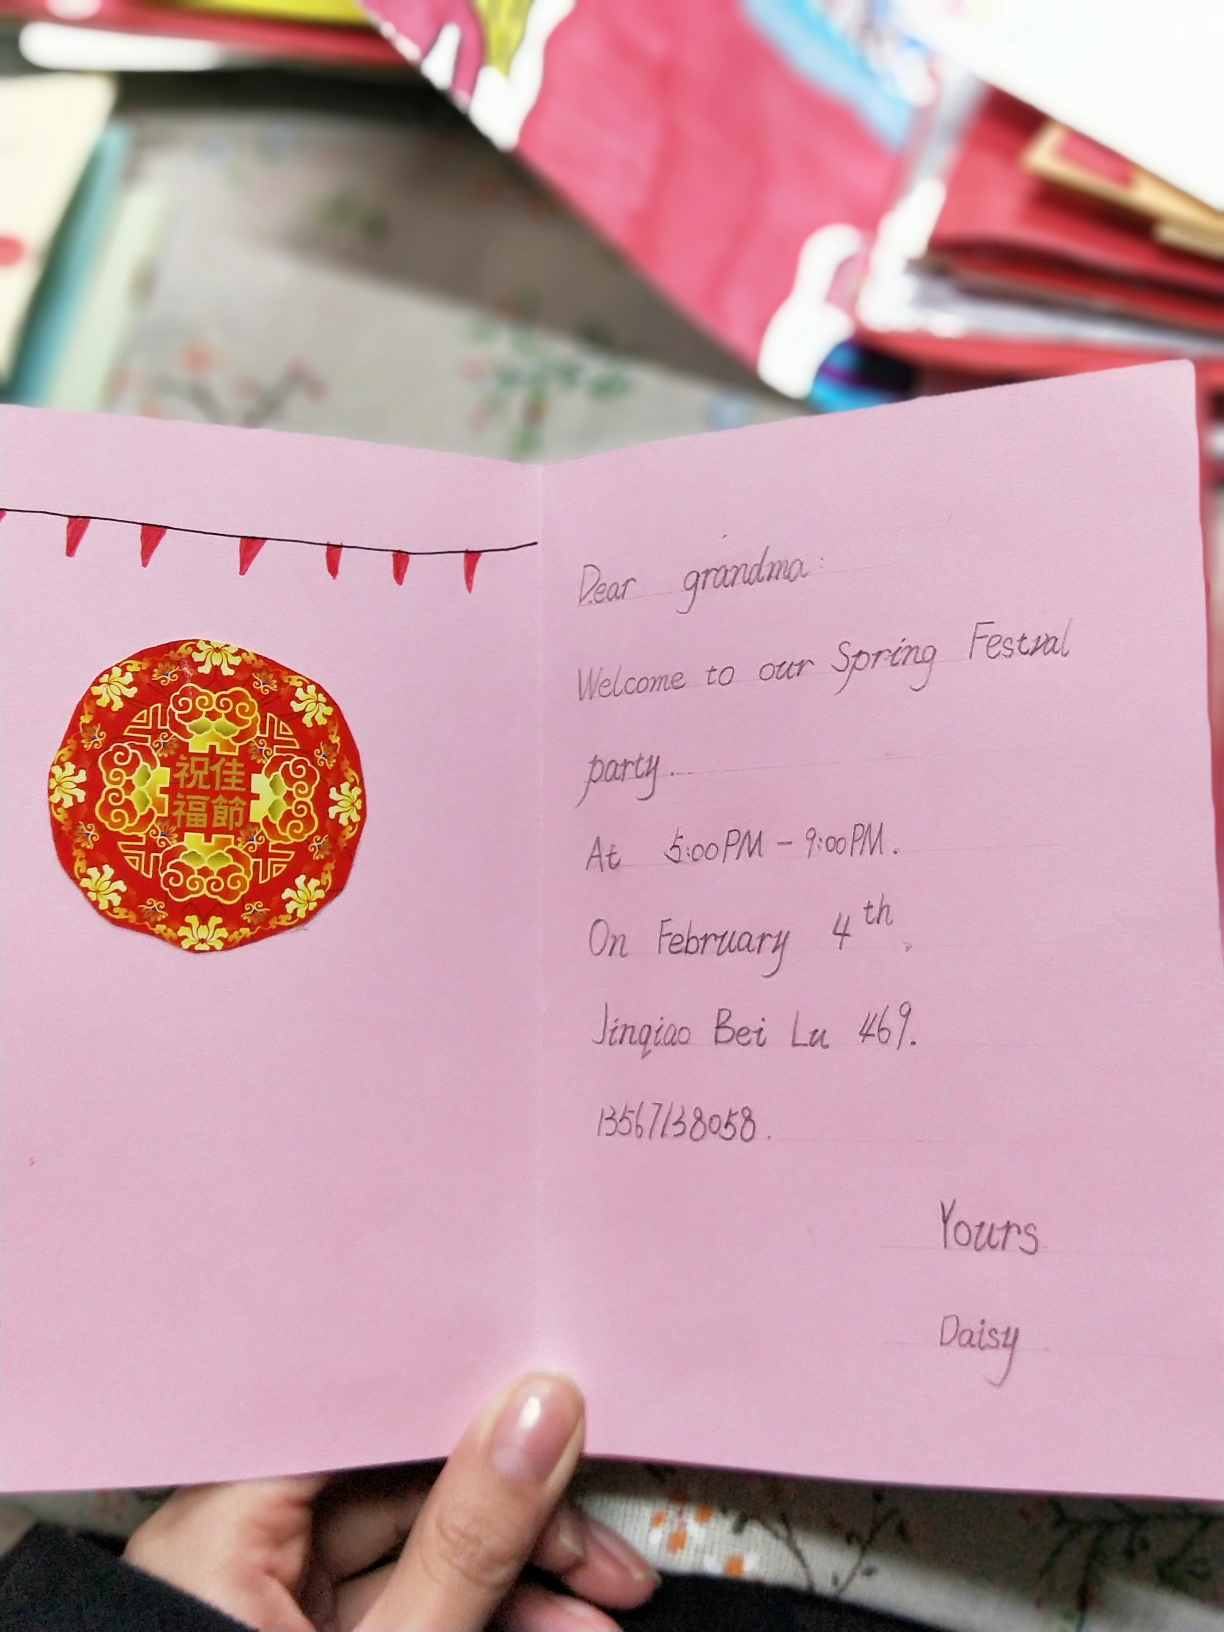 祝佳
福節
Dear grandma:
Welcome to our Spring Festval
party...
At 5:00PM - 9:00PM.
On February 4th.
Jinqiao Bei Lu 469.
13567138058.
Yours
Daisy